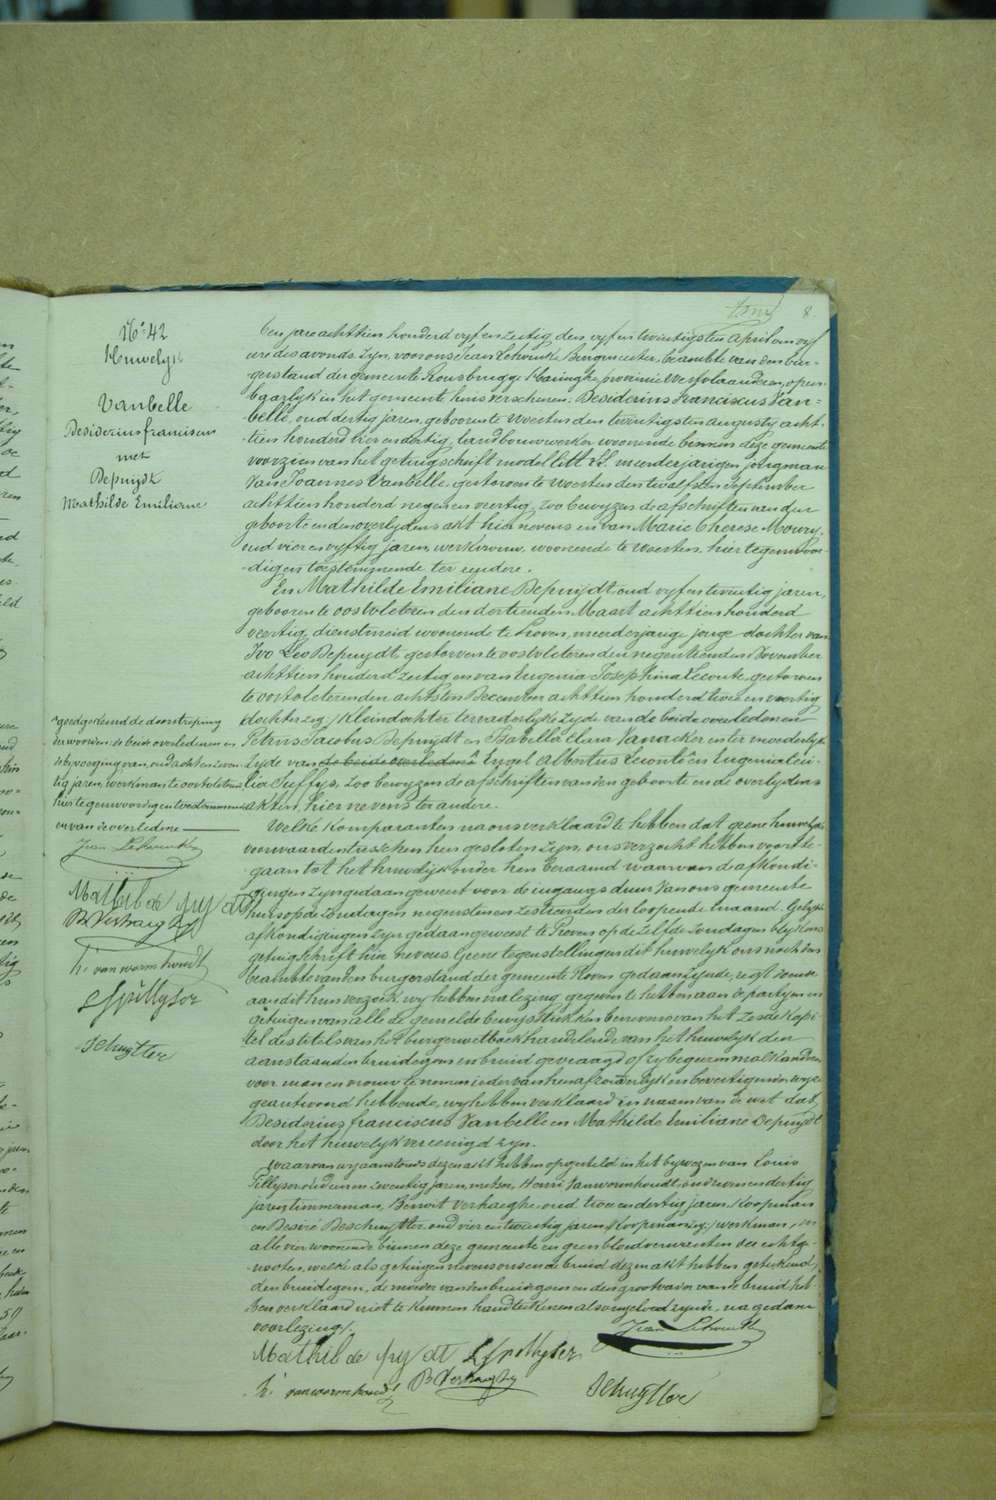 8.
N° 42
Huwelyk
Vanbelle
Desiderius franciscus
met
Depuydt
Mathilde Emiliane
Den jare achttien honderd vyf en zestig, den vyf en twintigsten April om vyf
ure des avonds zyn, voor ons Jean Burgmeester, beambte van den bur-
gerstand der gemeente Rousbrugge Haringhe provincie Westvlaanderen, open-
baarlyk in het gemeente huis verschenen: Desiderius Franciscus Van=
belle, oud dertig jaren, geboren te Woesten den twintigsten augusty acht-
tien honderd vier en dertig, landbouwwerker woonende binnen deze gemeente
voorzien van het getuigschrift model litt meerderjarigen jongman
Van Joannes Vanbelle, gestorven te Woesten den twaalfsten September
achttien honderd negen en veertig, zoo bewyzen de afschriften van zyn
geboorte en den overlydens akt hier nevens en van Marie Therese Moury,
oud vier en vyftig jaren, werkvrouw, woonende te Woesten, hier tegenwoor-
digen toestemmende ter eendere.
En Mathilde Emiliane Depuydt oud vyf en twintig jaren,
geboren te oostvleteren den dertienden Maart achttien honderd
veertig, dienstmeid woonende te Proven, meerderjarige jonge dochter van
Ivo Leo Depuydt, gestorven te oostvleteren den negentienden November
achttien honderd zestig en van Eugenia Josephina Leconte, gestorven
te oostvleteren den achtsten December achttien honderd twee en veertig
dochter zeg: kleindochter ter vaderlyke zyde van de beide overledenen
Petrus Jacobus Depuydt en Isabella Clara Vanacker en ter moederlyke
zyde van de beide overledenen Engel Albertus Leconte en Eugenia
Juffys, zoo bewyzen de afschriften van den geboorte en de overlydens
akten, hier nevens ter andere.
goedgekeurd de doorstreping
der woorden: de beide overledenen en
de byvoeging van, oud acht en zeven
tig jaren, werkman te oostvleteren
hier tegenwoordig en toestemmende
en van de overledene
Mathilde puydt
B Verhaeghe
h: vanwormhoudt
L Spillyser
Schuytter
Welke komparanten na ons verklaard te hebben dat geene huwelyks
voorwaarden tusschen hen gesloten zyn, ons verzocht hebben voort te
gaan tot het huwelyk onder hen beraamd waarvan de afkondi-
gingen zyn gedaan geweest voor de ingangs deur van ons gemeente
huis op de zondagen negensten en zestienden der loopende maand. Gelyke
afkondigingen zyn gedaan geweest te Proven op de zelfde zondagen blykens
getuigschrift hier nevens. Geene tegenstellingen dit huwelyk ons noch den
beambte van den burgerstand der gemeente Proven gedaan zynde, regt doende
aan dit hun verzoek, wy hebben na lezing gegeven te hebben aan de partyen en
getuigen van alle de gemelde bewysstukken benevens van het zesde kapi-
tel des titels van het burgerwetboek handelende van het huwelyk den
aanstaanden bruidegom en bruid gevraagd of zy begeeren malkander
voor man en vrouw te nemen ieder van hen afzonderlyk en bevestigender wyze
geantwoord hebbende, wy hebben verklaard in naam van de wet dat
Desiderius franciscus Vanbelle en Mathilde Emiliane Depuydt
door het huwelyk vereenigd zyn.
Waarvan wy aanstonds dezen akt hebben opgesteld in het bywezen van Louis
Pillyser oud een en zeventig jaren, metser, Henri Vanwormhoudt, oud een en dertig
jaren timmerman, Benoit Verhaeghe oud twee en dertig jaren koopman
en Desiré Deschuytter, oud vier en twintig jaren koopman zeg: werkman,
alle vier woonende binnen deze gemeente en geen bloedverwanten der echtge-
nooten, welke als getuigen nevens ons en de bruid dezen akt hebben geteekend,
den bruidegom, de moeder van den bruidegom en den grootvader van de bruid heb-
ben verklaard niet te kunnen handteekenen alsvooren gevraegd zynde, na gedane
voorlezing.
Mathilde puydt L Spillyser
h: vanwormhoudt B Verhaeghe Schuytter